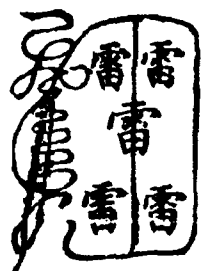 雷 雷
雷
雷 雷